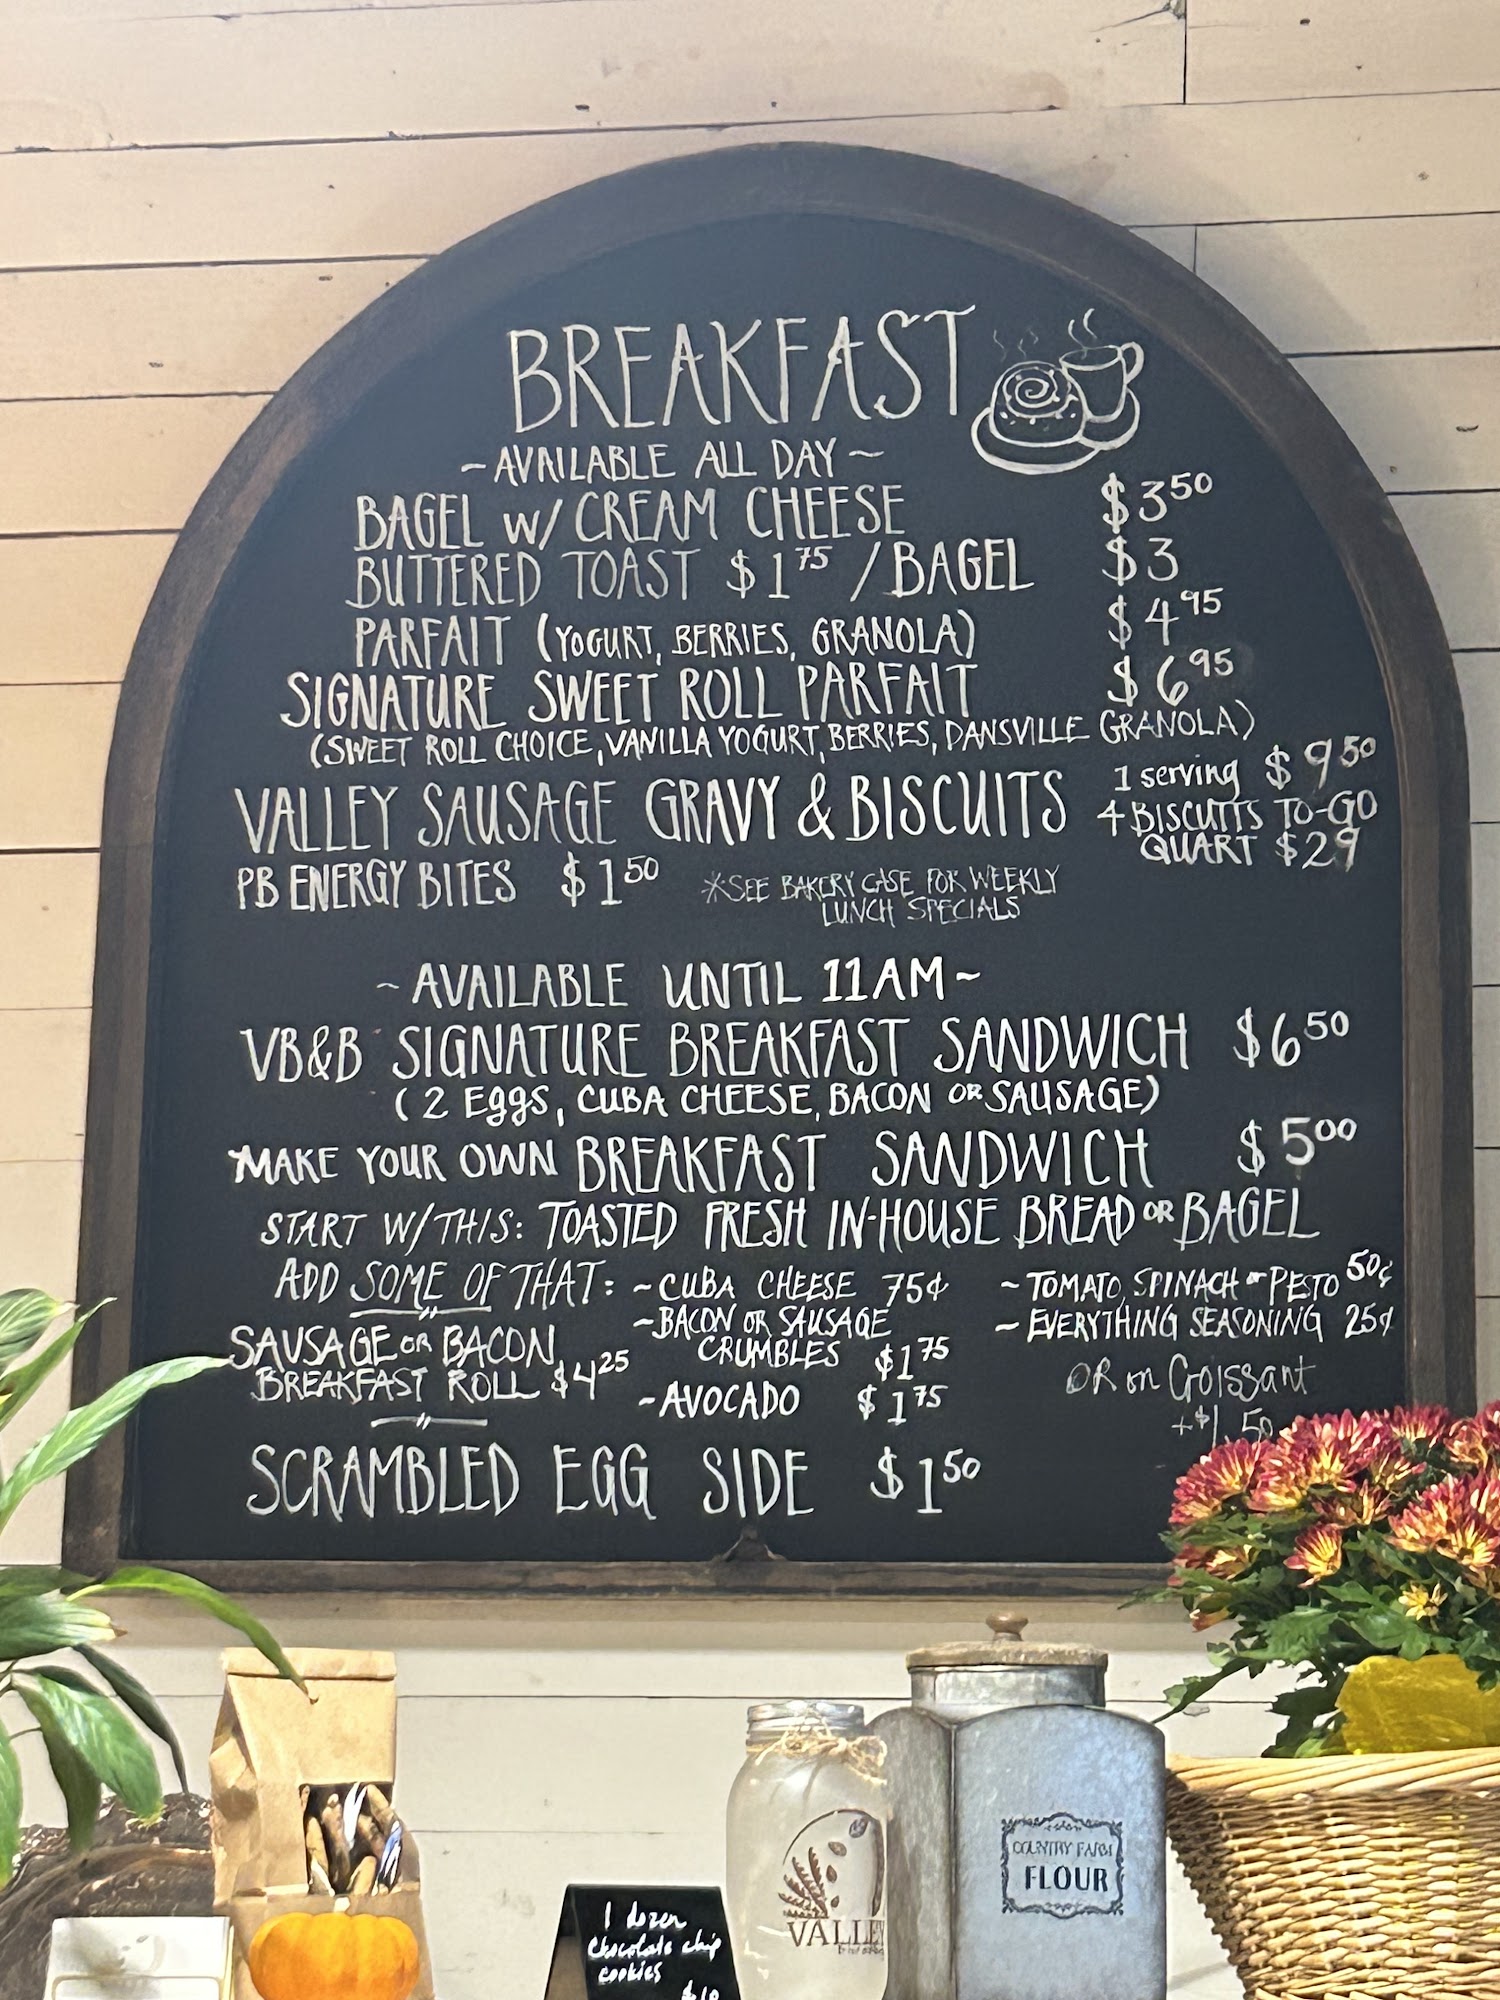 BREAKFAST
~AVAILABLE ALL DAY~
BAGEL W/ CREAM CHEESE $3 50
BUTTERED TOAST $1 75 / BAGEL $3
PARFAIT (YOGURT, BERRIES, GRANOLA) $4 95
SIGNATURE SWEET ROLL PARFAIT $6 95
(SWEET ROLL CHOICE, VANILLA YOGURT, BERRIES, DANSVILLE GRANOLA)
VALLEY SAUSAGE GRAVY & BISCUITS 1 serving $9 50
4 BISCUITS TO-GO
QUART $29
PB ENERGY BITES $1 50
*SEE BAKERY CASE FOR WEEKLY
LUNCH SPECIALS
~AVAILABLE UNTIL 11AM~
VB&B SIGNATURE BREAKFAST SANDWICH $6 50
(2 Eggs, CUBA CHEESE, BACON OR SAUSAGE)
MAKE YOUR OWN BREAKFAST SANDWICH $5 00
START W/ THIS: TOASTED FRESH IN-HOUSE BREAD OR BAGEL
ADD SOME OF THAT:
~CUBA CHEESE 75¢
~BACON OR SAUSAGE
CRUMBLES $1 75
~AVOCADO $1 75
~TOMATO, SPINACH or PESTO 50¢
~EVERYTHING SEASONING 25¢
OR on Croissant
+$1.50
SAUSAGE OR BACON
BREAKFAST ROLL $4 25
SCRAMBLED EGG SIDE $1 50
1 dozen
Chocolate chip
cookies
$10
VALLEY
COUNTRY FARM
FLOUR